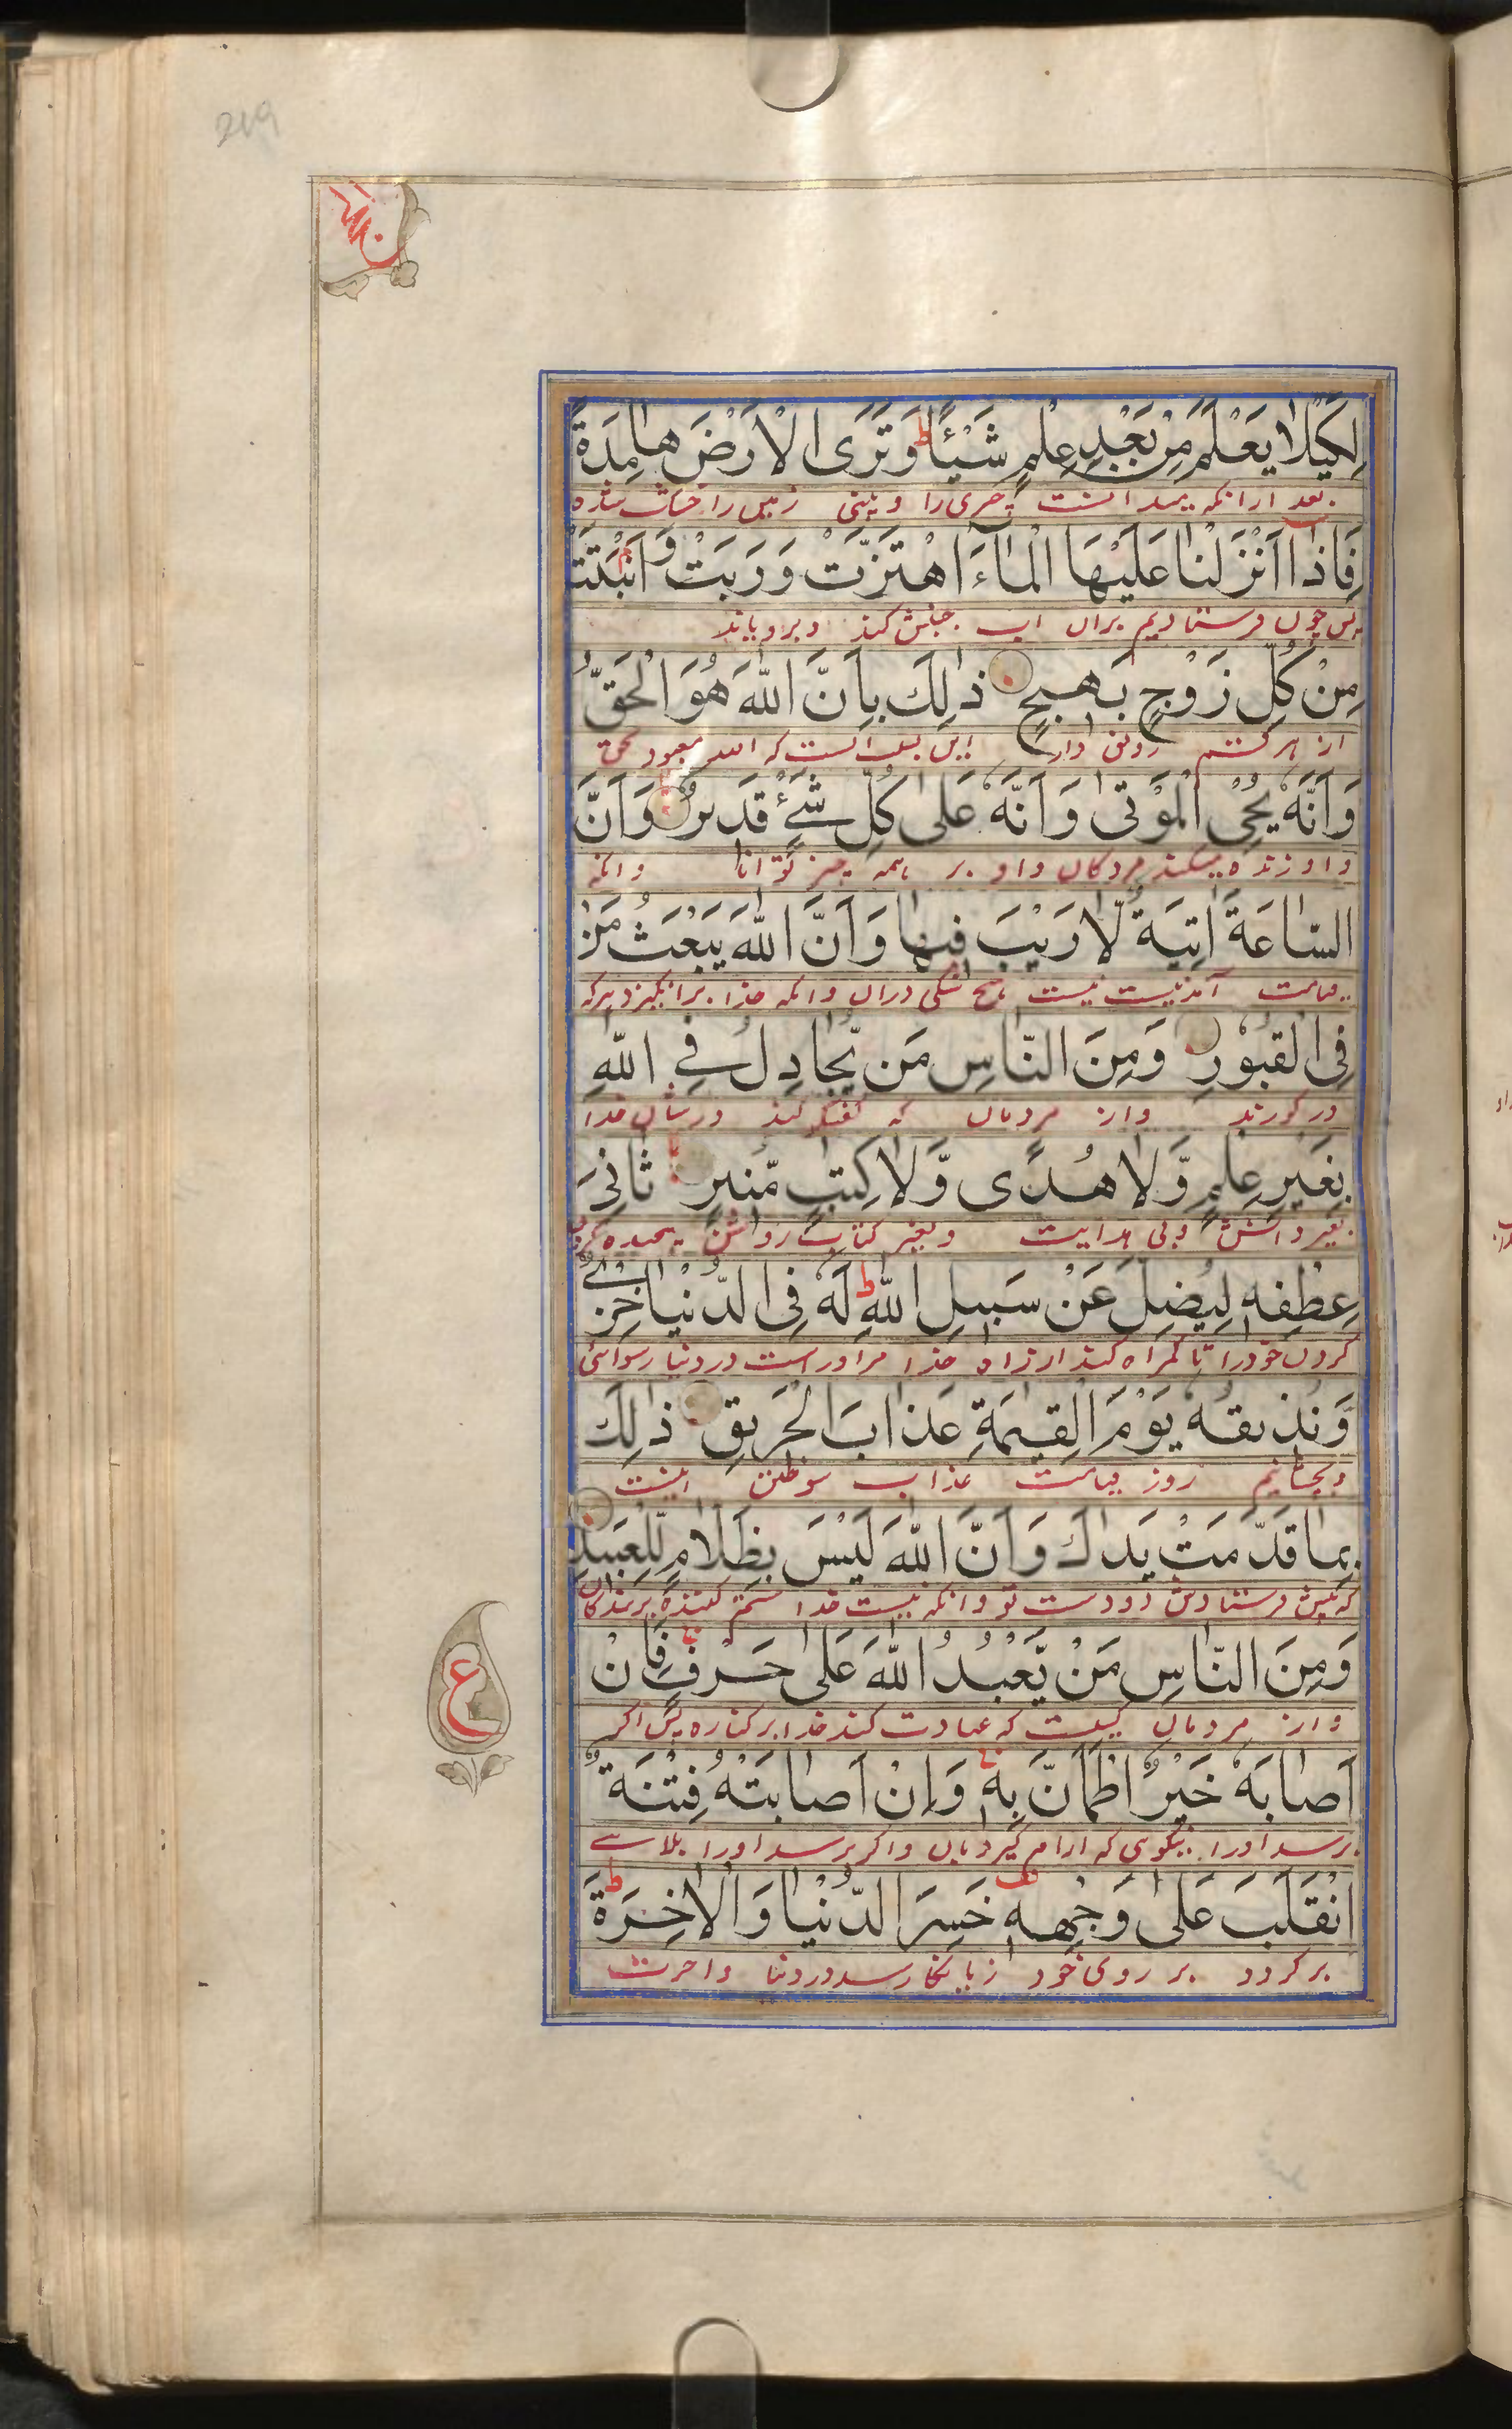 219
لِكَيْلَا يَعْلَمَ مِنْ بَعْدِ عِلْمٍ شَيْئًا ط وَتَرَى الْاَرْضَ هَامِدَةً
بعد ازانکه میدانست چیزی را و بینی زمین را خشک شده
فَاِذَا اَنْزَلْنَا عَلَيْهَا الْمَآءَ اهْتَزَّتْ وَرَبَتْ وَاَنْبَتَتْ
پس چون فرستادیم بران اب جنبش کند و برویاند
مِنْ كُلِّ زَوْجٍ بَهِيجٍ ذٰلِكَ بِاَنَّ اللّٰهَ هُوَ الْحَقُّ
از هر قسم رونق دار این بسبب انست که الله معبود بحق
وَاَنَّهٗ يُحْيِ الْمَوْتٰى وَاَنَّهٗ عَلٰى كُلِّ شَيْءٍ قَدِيرٌ وَاَنَّ
و او زنده میکند مردکان و او بر همه چیز توانا وانکه
السَّاعَةَ اٰتِيَةٌ لَّا رَيْبَ فِيهَا وَاَنَّ اللّٰهَ يَبْعَثُ مَنْ
قیامت آمدنیست نیست هیچ شکی دران وانکه خدا برانگیزد هرکه
فِى الْقُبُوْرِ وَمِنَ النَّاسِ مَن يُّجَادِلُ فِي اللّٰهِ
در کورند واز مردمان که گفتگو کند درشان خدا
بِغَيْرِ عِلْمٍ وَّلَا هُدًى وَّلَا كِتٰبٍ مُّنِيرٍ ثَانِىَ
بغیر دانش وبی هدایت وبغیر کتاب روشن پیچیده
عِطْفِهٖ لِيُضِلَّ عَنْ سَبِيلِ اللّٰهِ ط لَهٗ فِى الدُّنْيَا خِزْيٌ
کردن خودرا تا گمراه کند از راه خدا مراوراست در دنیا رسوائی
وَنُذِيقُهٗ يَوْمَ الْقِيٰمَةِ عَذَابَ الْحَرِيقِ ذٰلِكَ
وبچشانیم روز قیامت عذاب سوختن اینست
بِمَا قَدَّمَتْ يَدَاكَ وَاَنَّ اللّٰهَ لَيْسَ بِظَلَّامٍ لِّلْعَبِيدِ
که پیش فرستاد دو دست تو وانکه نیست خدا ستم کننده بر بندکان
وَمِنَ النَّاسِ مَنْ يَّعْبُدُ اللّٰهَ عَلٰى حَرْفٍ فَاِنْ
واز مردمان کیست که عبادت کند خدا بر کناره پس اکر
ع
اَصَابَهٗ خَيْرٌ اطْمَاَنَّ بِهٖ وَاِنْ اَصَابَتْهُ فِتْنَةٌ
برسد اورا نیکوی که ارام گیرد بان واکر برسد اورا بلاے
انْقَلَبَ عَلٰى وَجْهِهٖ خَسِرَ الدُّنْيَا وَالْاٰخِرَةَ ط
برکردد بر روی خود زیانکار شد در دنیا واخرت